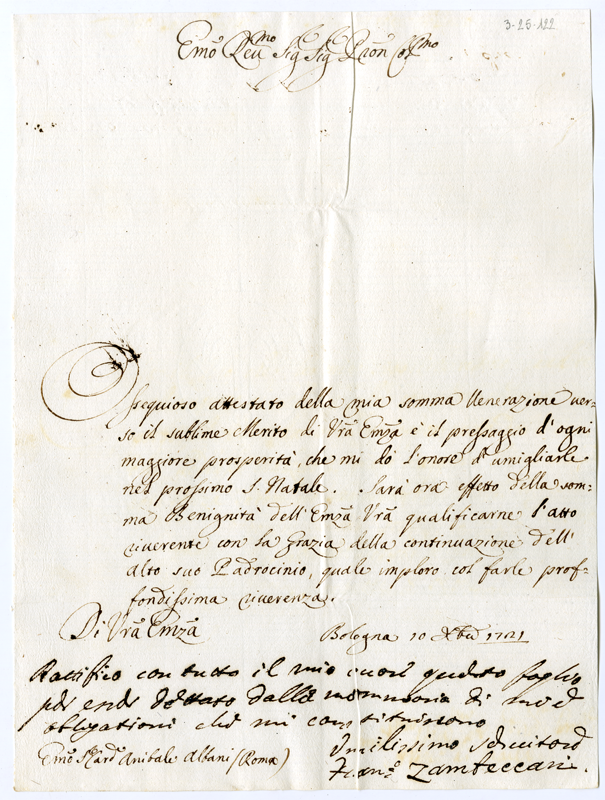 3-26-122
Emo Reumo Sig Sig Pron Colmo
Ossequioso attestato della mia somma Venerazione ver=
so il sublime Merito di Vra Emza è il pressaggio d'ogni
maggiore prosperità, che mi dò l'onore d'umigliarle
nel prossimo S. Natale. Sarà ora effetto della som=
ma Benignità dell'Emza Vra qualificarne l'atto
riverente con la Grazia della continuazione dell'
Alto suo Padrocinio, quale imploro col farle prof=
fondissima riverenza.
Di Vra Emza
Bologna 10 Xbre 1721
Rattifico con tutto il mio cuore questo foglio
per esser dettato dalle memoria di mie
obligationi che mi constituiscono
Emo S Card Anibale Albani (Roma)
Umilissimo servitore
Franco Zambeccari